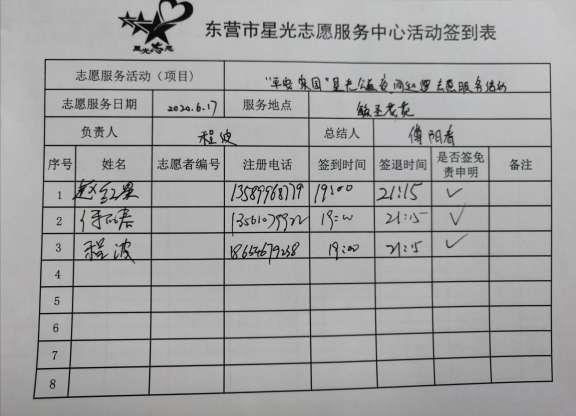 星光志愿
东营市星光志愿服务中心活动签到表
志愿服务活动（项目） “平安家园”星光公益夜间巡逻志愿服务活动
志愿服务日期 2020.6.17 服务地点
负责人 程波 总结人
序号 姓名 志愿者编号 注册电话 签到时间 签退时间 是否签免责申明 备注
1 赵红果 13589968779 19:00 21:15 ✓
2 13561079922 19:00 21:15 ✓
3 程波 18654679238 19:00 21:15 ✓
4
5
6
7
8